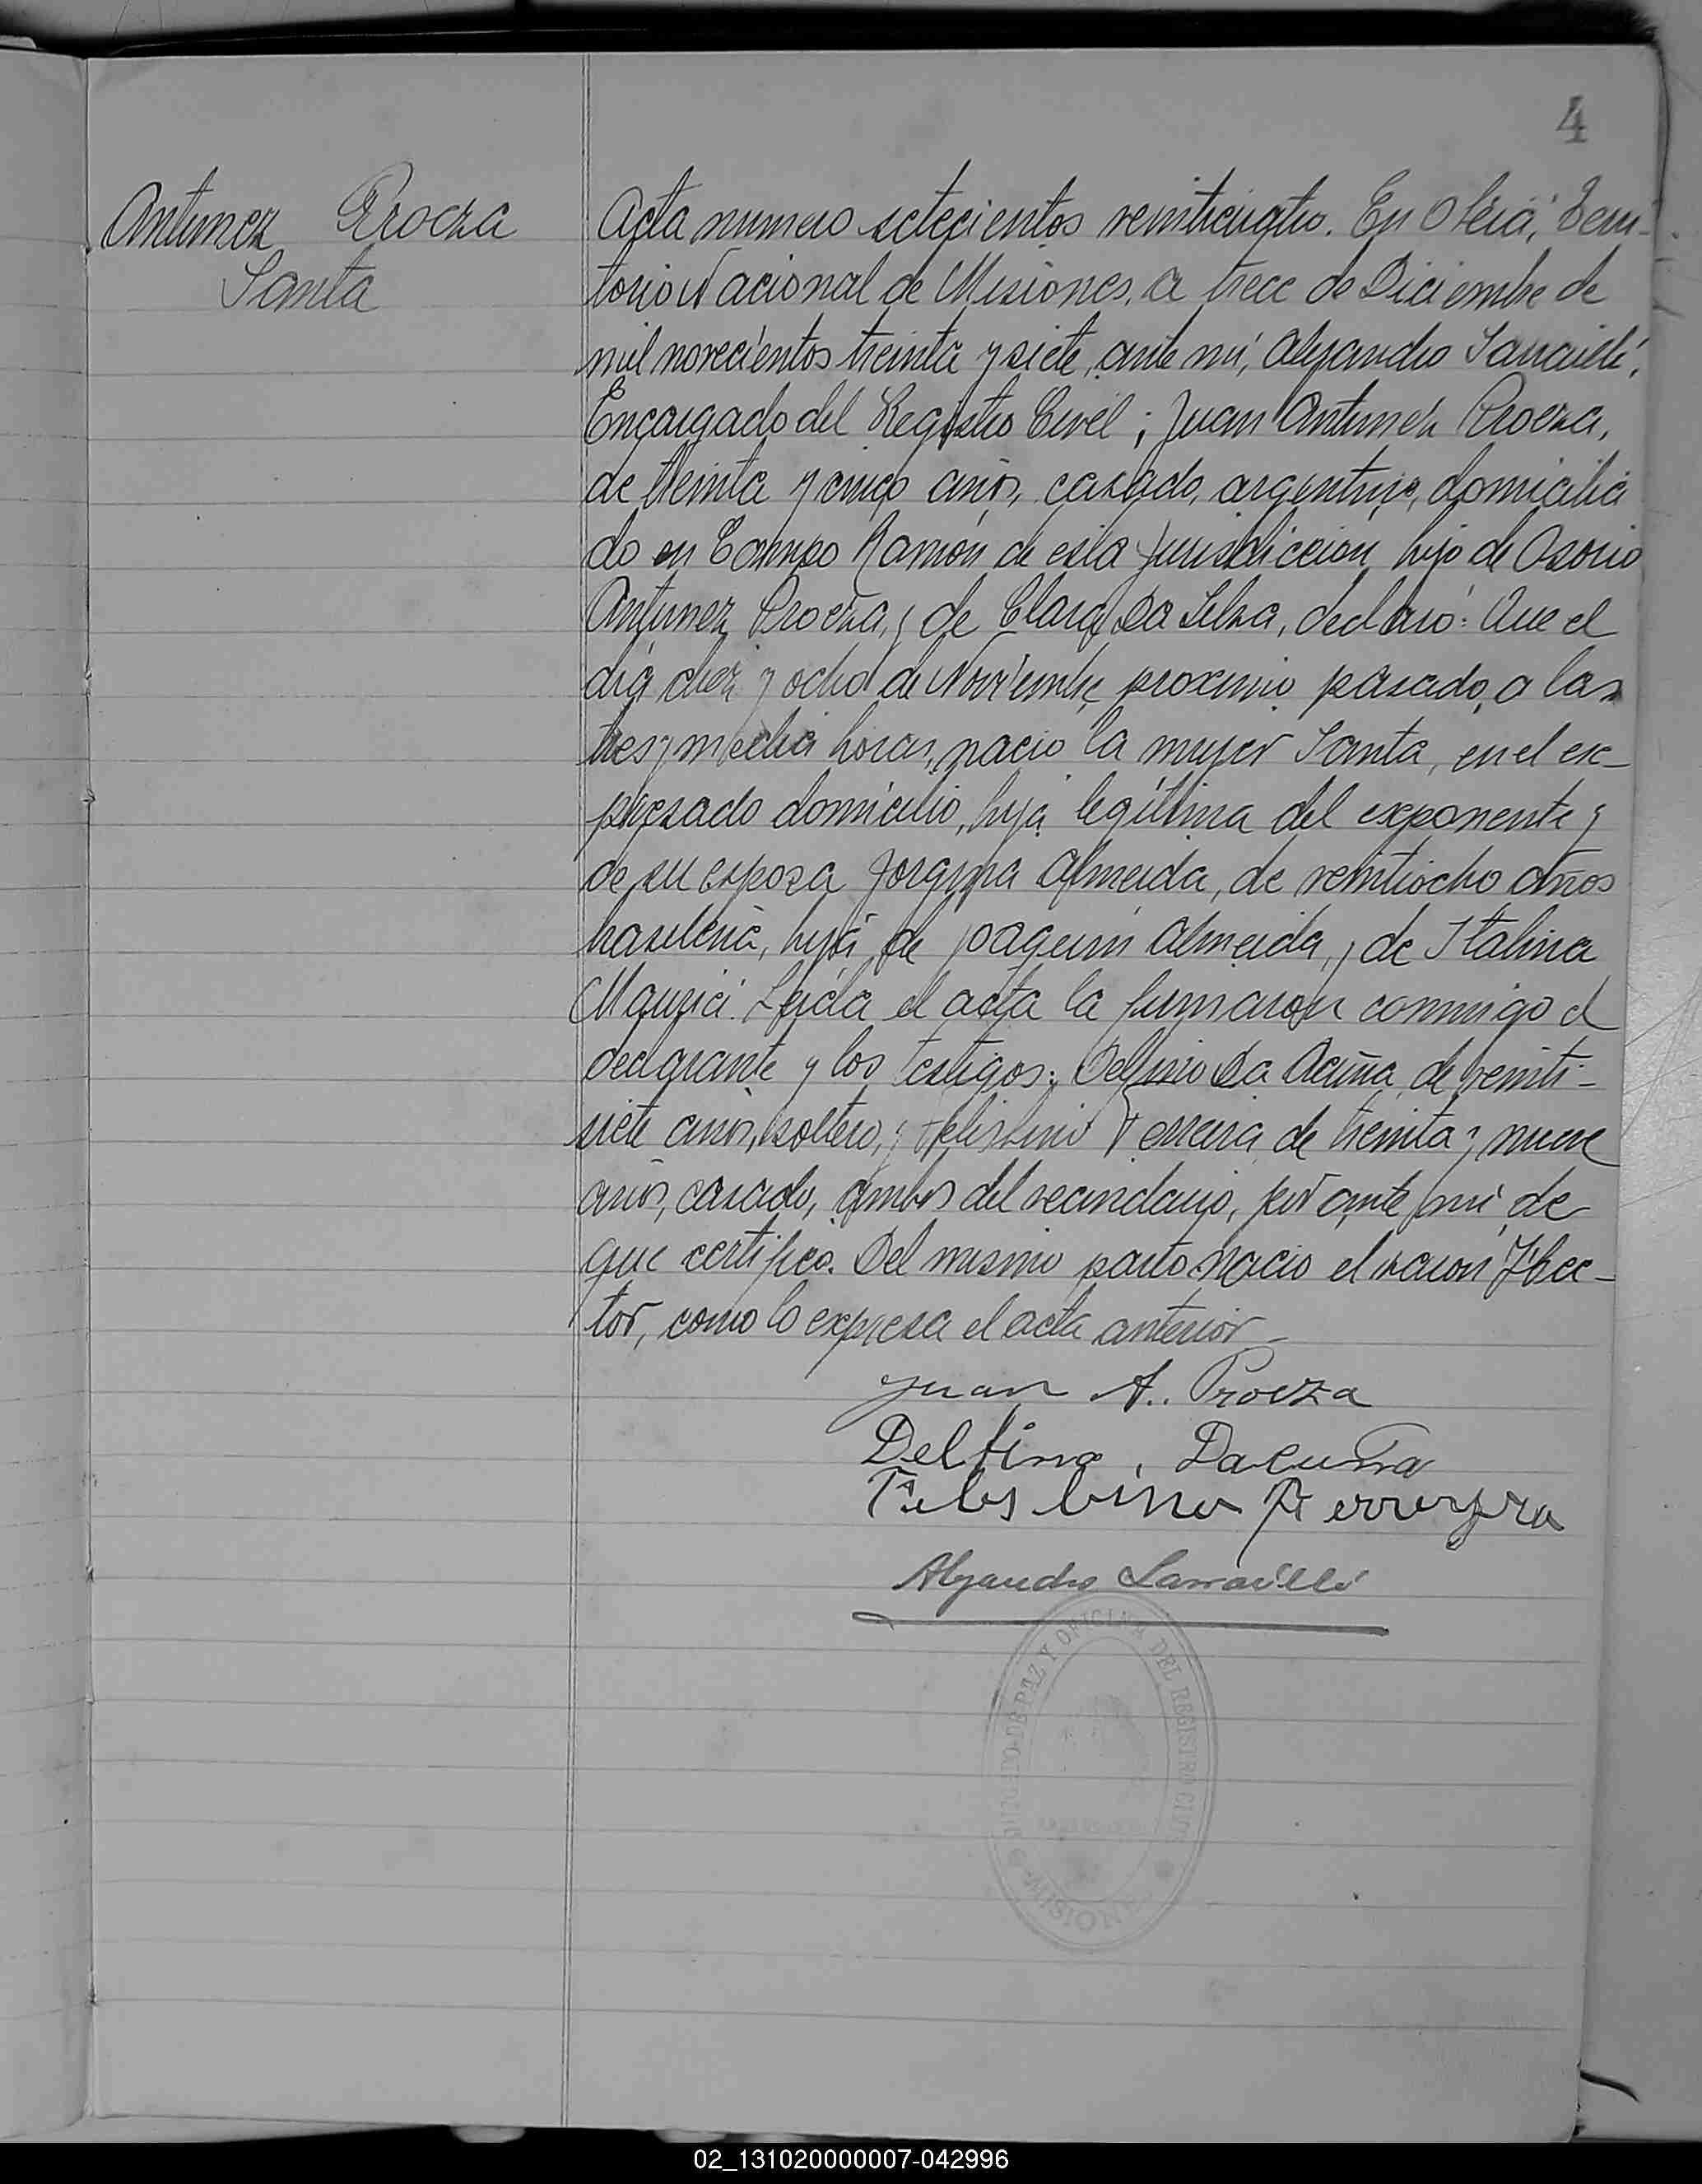 4
Antunez Proeza
Santa
Acta numero setecientos veinticuatro. En Oberá, Terri-
torio Nacional de Misiones, a trece de Diciembre de
mil novecientos treinta y siete, ante mí, Alejandro
Encargado del Registro Civil; Juan Antunez Proeza,
de treinta y cinco años, casado, argentino, domicilia
do en Campo Ramón de esta jurisdiccion, hijo de Osorio
Antunez Proeza, y de Clara Da Silva, declaró: Que el
día diez y ocho de Noviembre proximo pasado, a las
tres y media horas, nacio la mujer Santa, en el ex-
presado domicilio, hija legítima del exponente y
de su esposa Jorgina Almeida, de veintiocho años
brasileña, hija de Joaquin Almeida, y de Italina
Leída el acta la firmaron conmigo el
declarante y los testigos: Delfino Da Acuña, de veinti-
siete años, soltero, y Felisbino Ferreira de treinta y nueve
años, casado, ambos del vecindario, por ante mí de
que certifico. Del mismo parto nacio el varon Hec-
tor, como lo expresa el acta anterior-
Juan A.. Proeza
Delfino, Dacuña
Felesbino Ferreyra
Alejandro
JUZGADO DE PAZ Y OFICINA DEL REGISTRO CIVIL
MISIONES
02_131020000007-042996